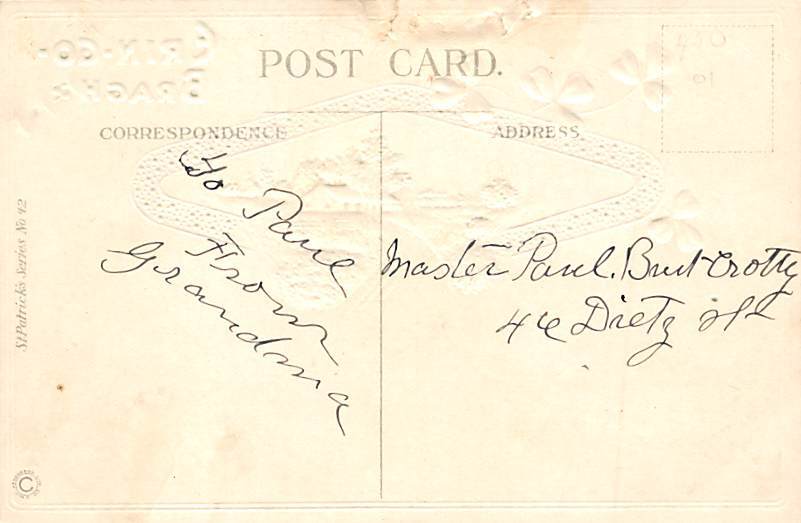 ERIN-GO-
BRAGH
POST CARD.
450
01
CORRESPONDENCE
ADDRESS
To Paul
From
Grandma
Master Paul. Burt Crotty
46 Dietz St
St Patrick's Series No 42
C